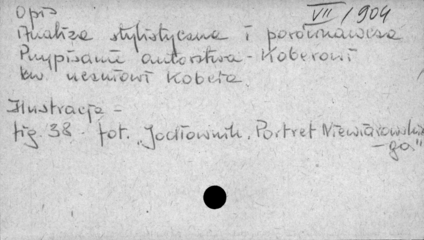 Opis VII/904
Analiza stylistyczna i porównawcza
Przypisanie autorstwa - Koberowi
lub uczniowi Kobera.
Ilustracje =
fig. 38 - fot. "Jodłownik, Portret Niewiarowskie-
go."